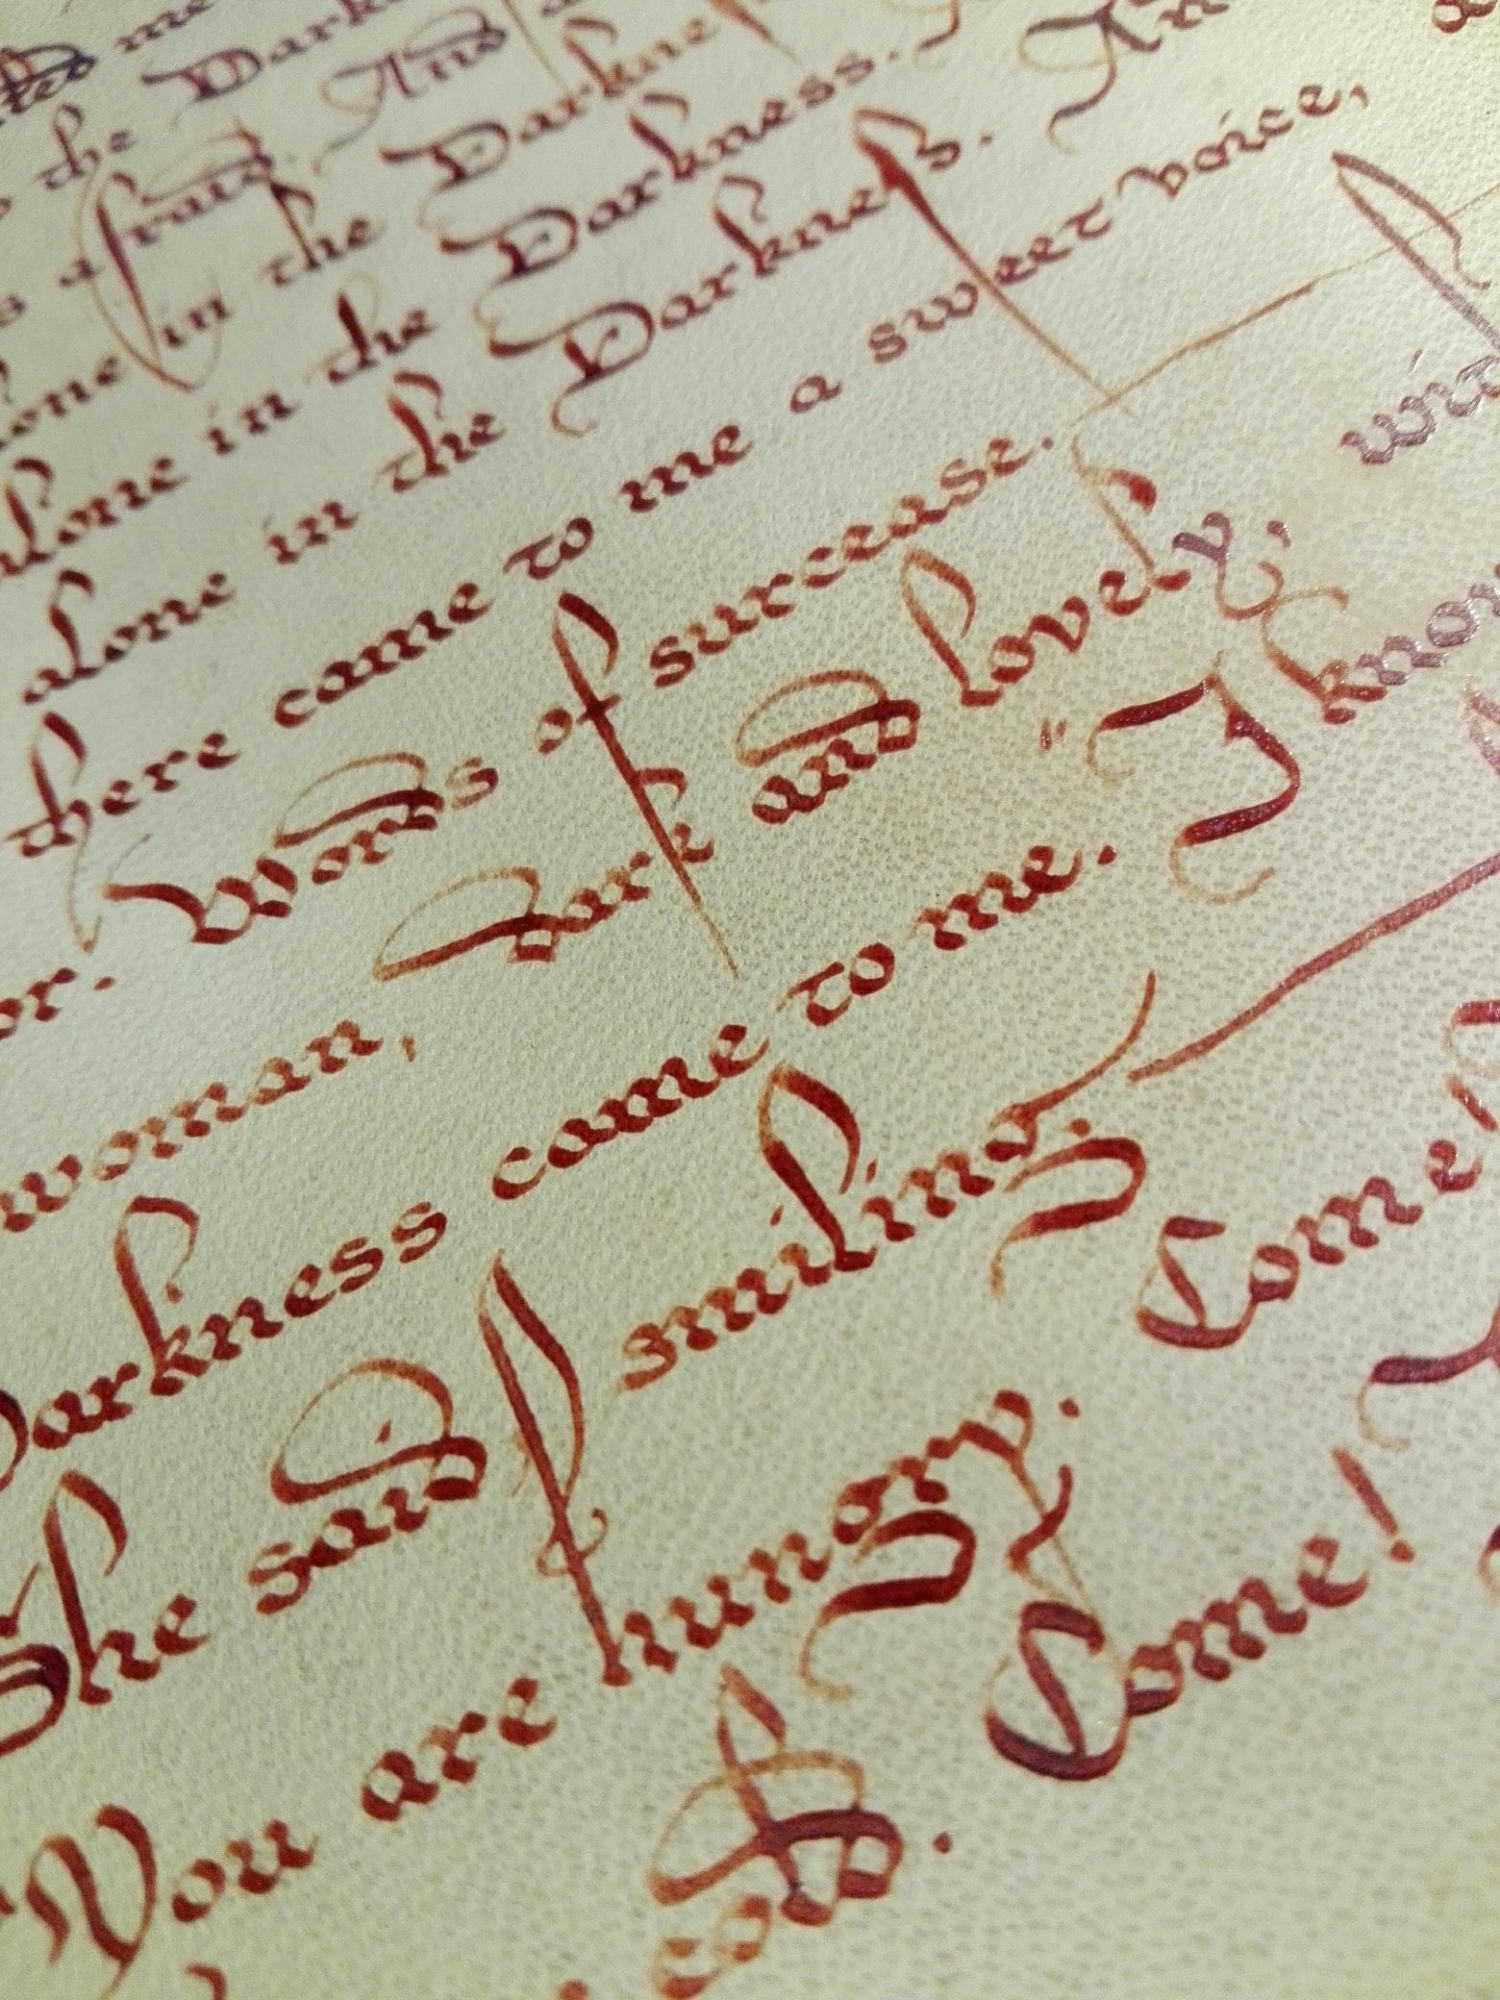 me
the Dark
afraid. And
alone in the Darkne
alone in the Darkness.
alone in the Darkness. An
there came to me a sweet voice,
or. Words of surcease.
woman, dark and lovely,
Darkness came to me. "I know
She said smiling.
"You are hungry. Come!
Come!